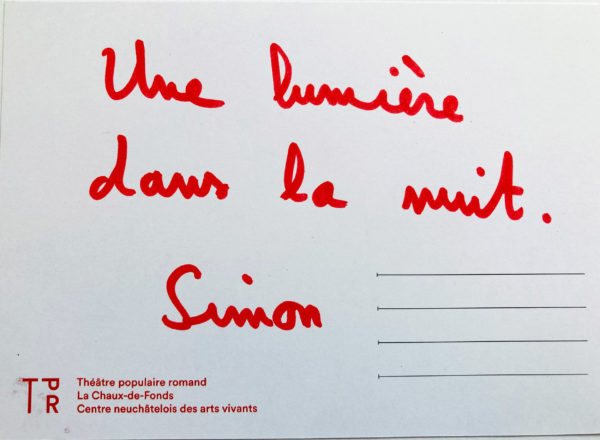 Une lumière
dans la nuit.
Simon
TPR
Théâtre populaire romand
La Chaux-de-Fonds
Centre neuchâtelois des arts vivants